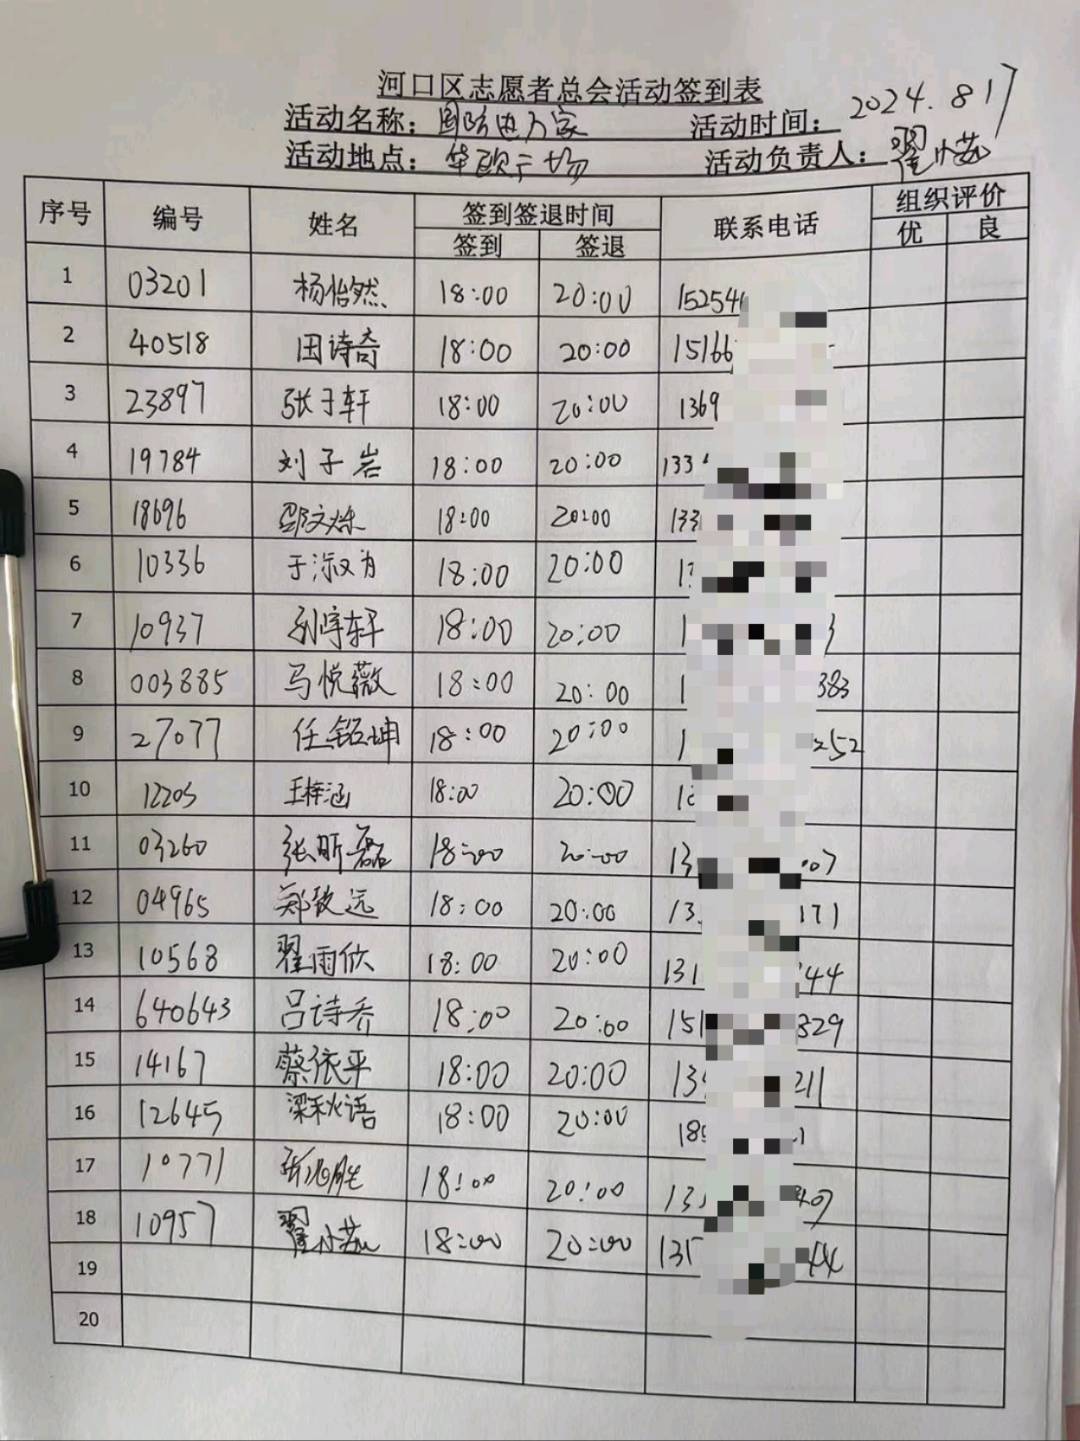 河口区志愿者总会活动签到表
活动名称：国防进万家 活动时间：2024.8 17
活动地点：华欧广场 活动负责人：翟小燕
序号 编号 姓名 签到签退时间 联系电话 组织评价
签到 签退 优 良
1 03201 杨怡然 18:00 20:00 15254
2 40518 田诗奇 18:00 20:00 15166
3 23897 张子轩 18:00 20:00 1369
4 19784 刘子岩 18:00 20:00 133
5 18696 邵文烁 18:00 20:00 133
6 10336 于淑为 18:00 20:00 1
7 10937 孙宇轩 18:00 20:00 1 3
8 003885 马悦薇 18:00 20:00 1 383
9 27077 任铭坤 18:00 20:00 1 252
10 12205 王梓涵 18:00 20:00 1
11 03260 张昕磊 18:00 20:00 13 07
12 04965 郑致远 18:00 20:00 13 171
13 10568 翟雨欣 18:00 20:00 131 44
14 640643 吕诗乔 18:00 20:00 151 329
15 14167 蔡依平 18:00 20:00 13 211
16 12645 梁秋语 18:00 20:00 18 1
17 10771 18:00 20:00 13 07
18 10957 翟小燕 18:00 20:00 135 44
19
20